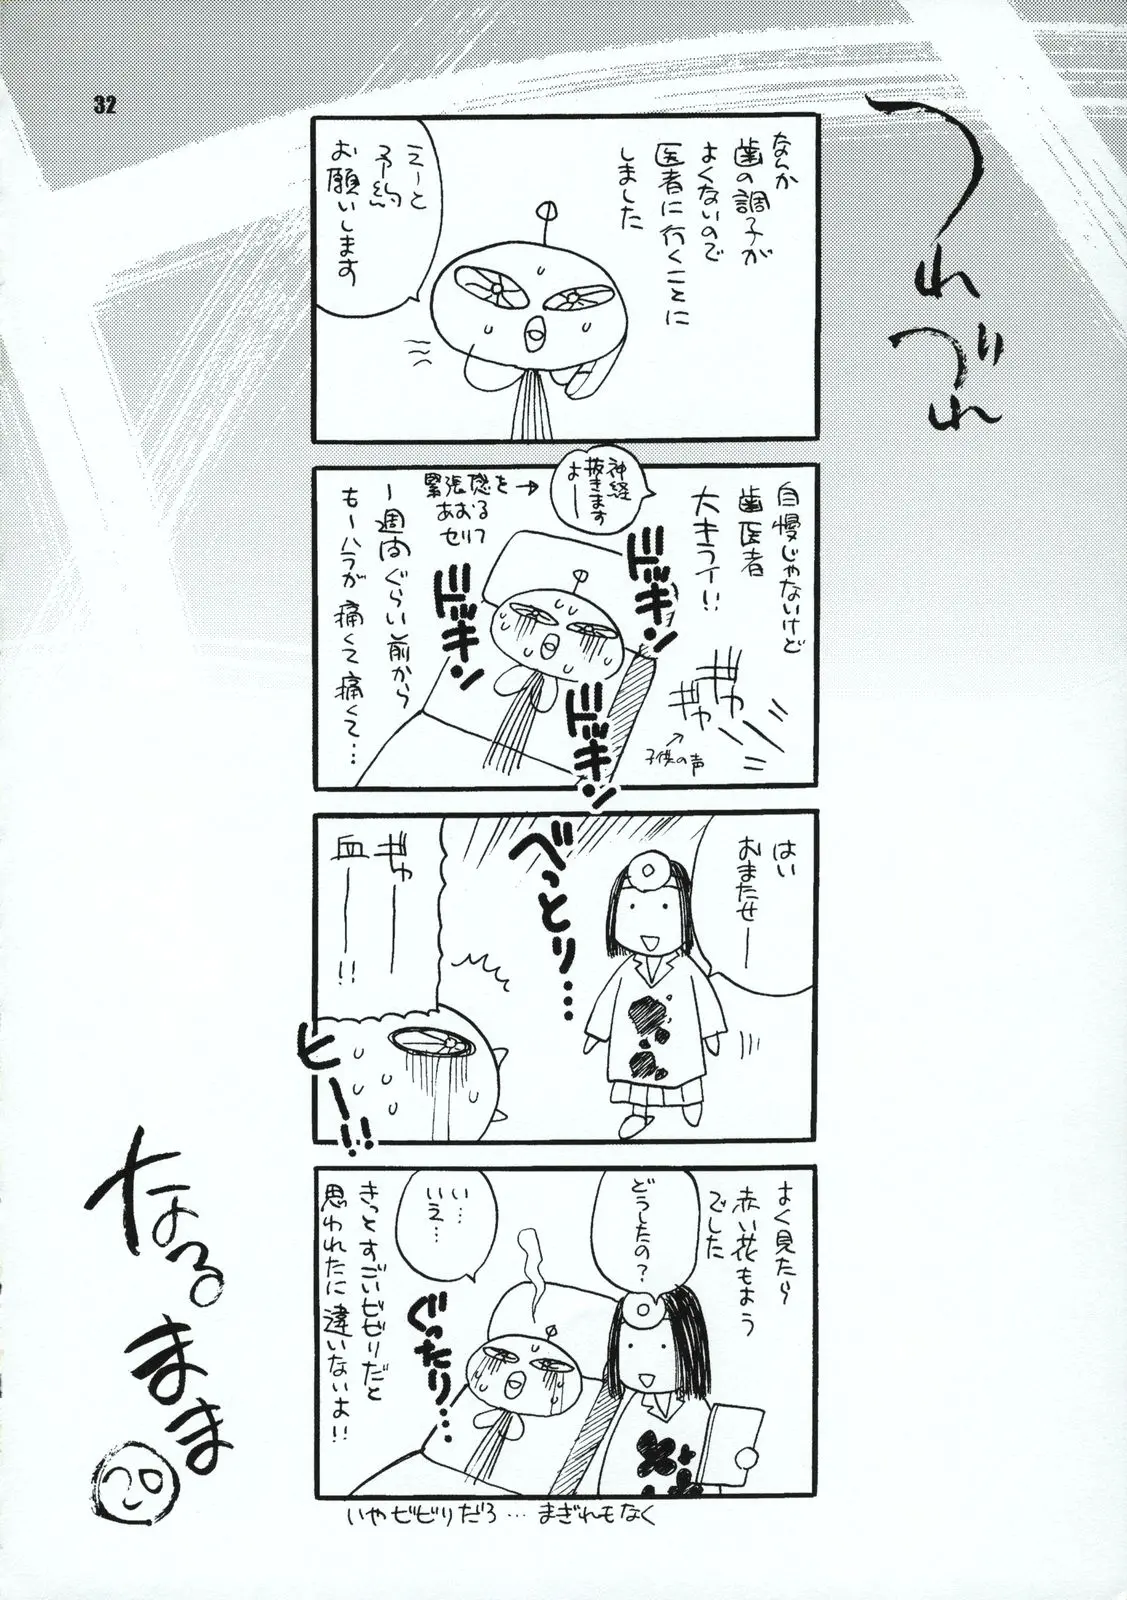 32
つれづれ
なるまま
20
なんか
歯の調子が
よくないので
医者に行くことに
しました
えーと
予約
お願いします
自慢じゃないけど
歯医者
大キライ!!
ギャ
ギャー
子供の声
神経
抜きます
よー
緊張感を→
あおる
セリフ
ドッキン
ドッキン
ドッキン
一週間ぐらい前から
もーハラが痛くて痛くて…
はい
おまたせー
べっとり…
ギャー
血ー!!
ヒー!!
よく見たら
赤い花もよう
でした
どうしたの?
い…
いえ…
ぐったり…
きっとすごいビビリだと
思われたに違いないよ!!
いやビビリだろ…まぎれもなく